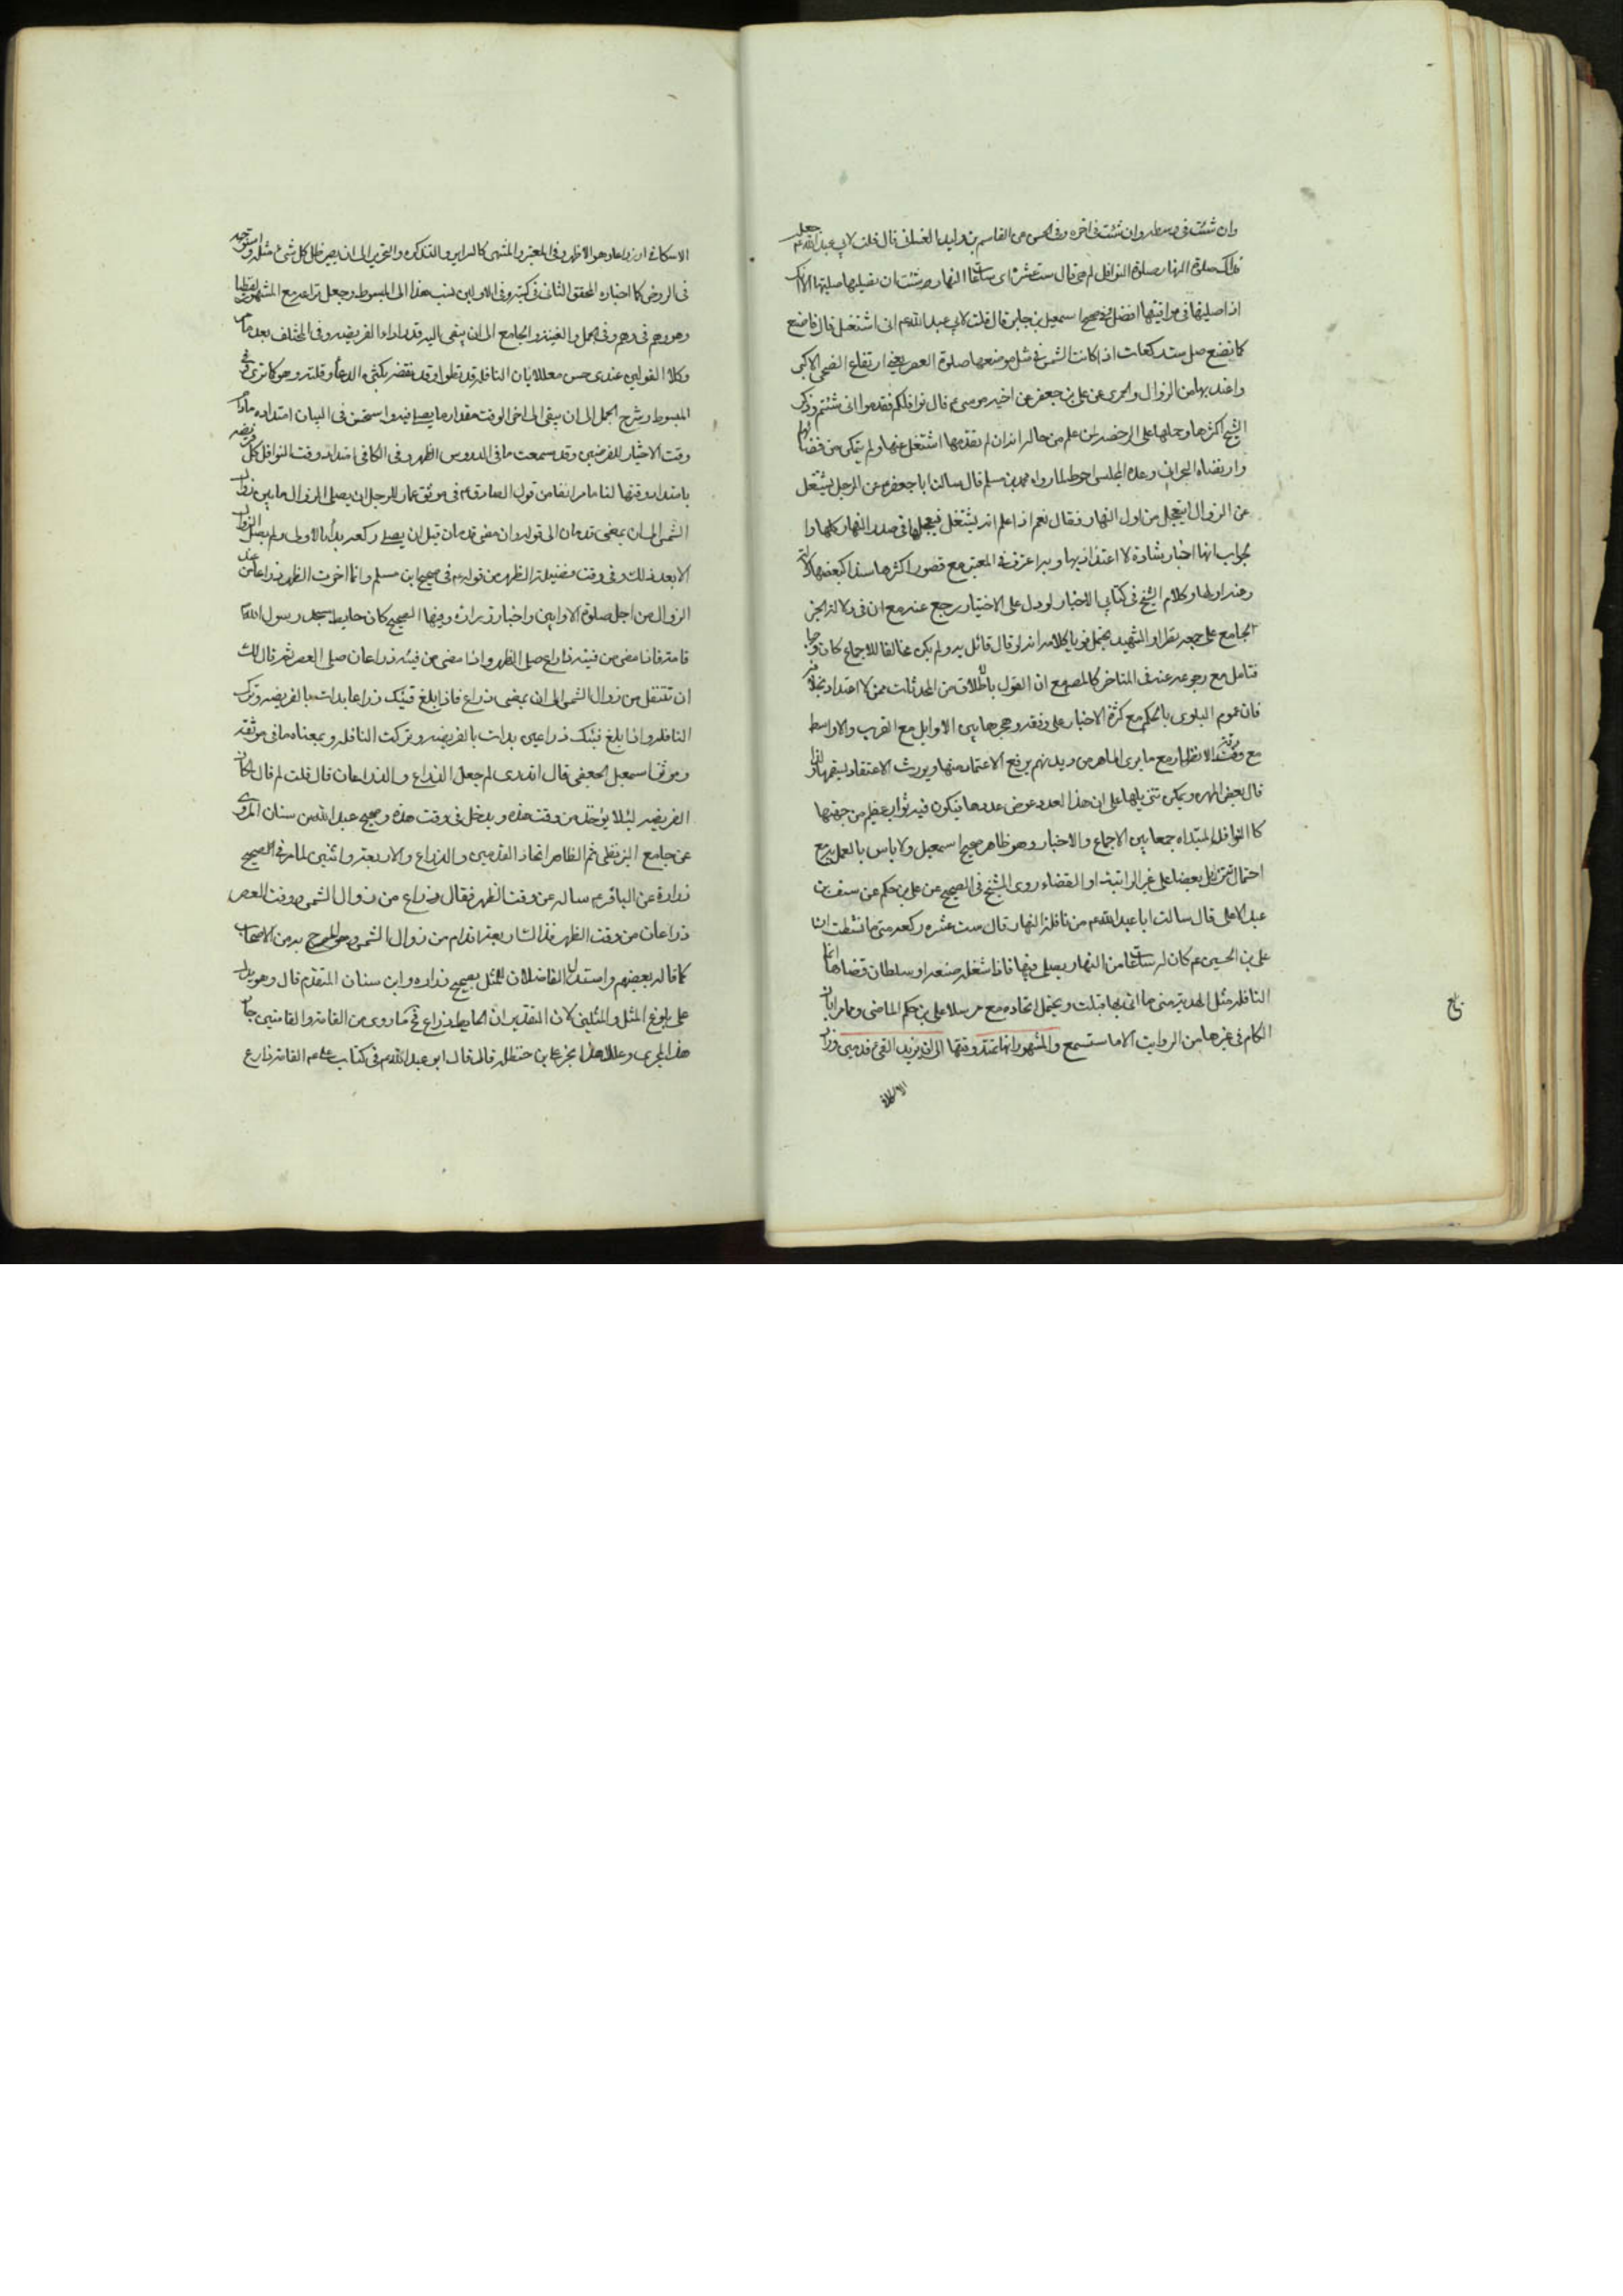 وان شئت فى وسطه وان شئت فى اخره وفى الحسن عن القاسم بن الوليد الغسانى قال قلت لابى عبد الله ع جعلت
فداك صلوة النهار صلوة النوافل كم هى قال ست عشرة اى ساعات النهار شئت ان تصليها صليتها الا انك
اذا صليتها فى مواقيتها افضل وفى صحيح اسمعيل بن جابر قال قلت لابى عبد الله ع انى اشتغل قال فاصنع
كما نصنع صل ست ركعات اذا كانت الشمس فى مثل موضعها صلوة العصر يعنى ارتفاع الضحى الاكبر
واعتد بها من الزوال والمروى عن على بن جعفر عن اخيه موسى ع قال نوافلكم فقدموا انى شئتم وذكر
الشيخ اكثرها وحملها على الرخصة لمن علم من حاله انه ان لم يقدمها اشتغل عنها ولم يتمكن من قضائها
وارتضاه البحرانى وعده المجلسى احوط لما رواه محمد بن مسلم قال سالت ابا جعفر ع عن الرجل يشتغل
عن الزوال ايتعجل من اول النهار فقال نعم اذا علم انه يشتغل فيعجلها فى صدر النهار كلها
بجواب انها اخبار شاذة لا اعتداد بها وبه اعترف فى المعتبر مع قصور اكثرها سندا كبعضها
وكلام الشيخ فى كتابى الاخبار لو دل على الاختيار رجع عنه مع ان فى دلالة
الجامع على جمعه نظرا والشهيد يحتمل قويا كلامه انه لو قال قائل به ولم يكن مخالفا للاجماع كان وجها
فتامل مع رجوعه عنه فى المتاخر كالمصرح ان القول باطلاق من المحدثات ممن لا اعتداد بخلافه
فان عموم البلوى بالحكم مع كثرة الاخبار على وفقه وهجرها بين الاوايل مع القرب والاواسط
مع الانظار مع ما يرى الماهر من ديدنهم يرفع الاعتماد منها ويورث الاعتقاد بسقمها ولذا
قال بعض المهرة ويمكن تنزيلها على ان هذا العدد عوض عددها فيكون فيه ثواب عظيم من جهتها
كالنوافل المبتداه جمعا بين الاجماع والاخبار وهو ظاهر صحيح اسمعيل ولا باس بالعمل به مع
احتمال تنزيل بعضها على غير الراتبة او القضاء روى الشيخ فى الصحيح عن على بن حكم عن سيف بن
عبد الاعلى قال سالت ابا عبد الله ع من نافلة النهار قال ست عشرة ركعة متى ما نشطت ان
على بن الحسين ع كان له ساعات من النهار يصلى فيها فاذا شغله ضيعة او سلطان قضاها انما
النافلة مثل الهدية متى ما اتى بها قبلت ويحتمل اتحاده مع مرسلا على بن حكم الماضى وما مر ابان
الكلام فى غيرها من الروايت الا ما ستسمع والمشهور انها تمتد وقتها الى ان يزيد الفئ قدمين وزاد
الاسكافى
بلغ
الاسكافى او ذراعا وهو الاظهر وفى المعتبر والمنتهى كالسراير والتذكرة والتحرير الى ان يصير ظل كل شئ مثله واستوجه
فى الروض كما اختاره المحقق الثانى فى كتبه وفى الاولين نسب هذا الى المبسوط وجعل نزاعه مع المشهور لفظيا
وهو وهم فى وهم وفى الجمل والغنية والجامع الى ان يبقى اليه قدر اداء الفريضه وفى المختلف بعد
وكلا القولين عندى حسن معللا بان النافلة قد تطول وقد تقصر بكثرة الدعاء وقلته وهو كما ترى
المبسوط وشرح الجمل الى ان يبقى الى اخر الوقت مقدار ما يصلى فيه واستحسن فى البيان امتداده مادام
وقت الاختيار للفرضين وقد سمعت ما فى الدروس الظهر وفى الكافى امتداد وقت النوافل كل فريضة
بامتداد وقتها لنا ما مر انفا من قول الصادق ع فى موثق عمار للرجل ان يصلى الزوال ما بين زوال
الشمس الى ان يمضى قدمان الى قوله وان مضى قدمان قبل ان يصلى ركعة بدأ بالاولى ولم يصل الزوال
الا بعد ذلك وفى وقت فضيلة الظهر من قوله ع فى صحيح ابن مسلم وانما اخرت الظهر ذراعا من عند
الزوال من اجل صلوة الاوابين واخبار زرارة وفيها الصحيح كان حايط مسجد رسول الله ص
قامة فاذا مضى من فيئه ذراع صلى الظهر واذا مضى من فيئه ذراعان صلى العصر ثم قال لك
ان تتنفل من زوال الشمس الى ان يمضى ذراع فاذا بلغ فيئك ذراعا بدات بالفريضه وتركت
النافله واذا بلغ فيئك ذراعين بدات بالفريضه وتركت النافلة وبمعناه ما فى موثقه
وموثق اسمعيل الجعفى قال اتدرى لم جعل الذراع والذراعان قال قلت لم قال لمكان
الفريضه لئلا يؤخذ من وقت هذه ويدخل فى وقت هذه وصحيح عبد الله بن سنان المروى
عن جامع البزنطى ثم الظاهر اتحاد القدمين والذراع والاربعة واثنين لما مر فى الصحيح
زرارة عن الباقر ع ساله عن وقت الظهر فقال ذراع من زوال الشمس ووقت العصر
ذراعان من وقت الظهر فذاك اربعة اقدام من زوال الشمس وهو المصرح به من الاصحاب
كما قاله بعضهم واستدل الفاضلان للمثل بصحيح زرارة وابن سنان المتقدم قال وهو يدل
على بلوغ المثل والمثلين لان التقدير ان الحايط ذراع فح ما روى من القامة والقامتين جار
هذا المجرى وعللا هذا بخبر على بن حنظلة قال قال ابو عبد الله ع فى كتاب على ع القامة ذراع